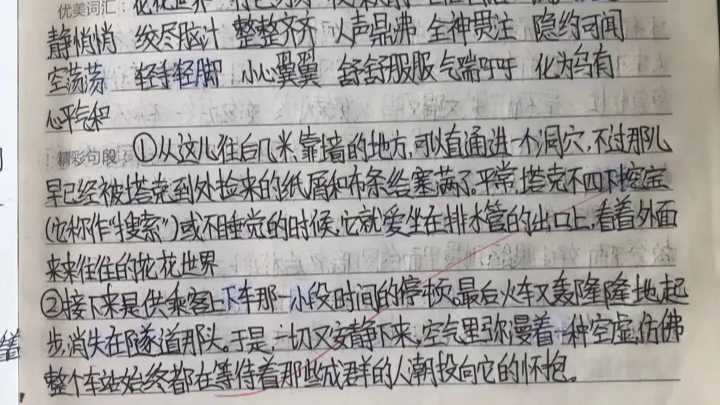 优美词汇: 花花世界
静悄悄 绞尽脑汁 整整齐齐 人声鼎沸 全神贯注 隐约可闻
空荡荡 轻手轻脚 小心翼翼 舒舒服服 气喘吁吁 化为乌有
心平气和
精彩句段: ①从这儿往后几米,靠墙的地方,可以直通进一个洞穴,不过那儿
早已经被塔克到外捡来的纸屑和布条给塞满了。平常,塔克不四下挖宝
(它称作"搜索")或不睡觉的时候,它就爱坐在排水管的出口上,看着外面
来来往往的花花世界
②接下来是供乘客上下车那一小段时间的停顿。最后火车又轰隆隆地起
步,消失在隧道那头。于是一切又安静下来,空气里弥漫着一种空虚,仿佛
整个车站始终都在等待着那些成群的人潮投向它的怀抱。